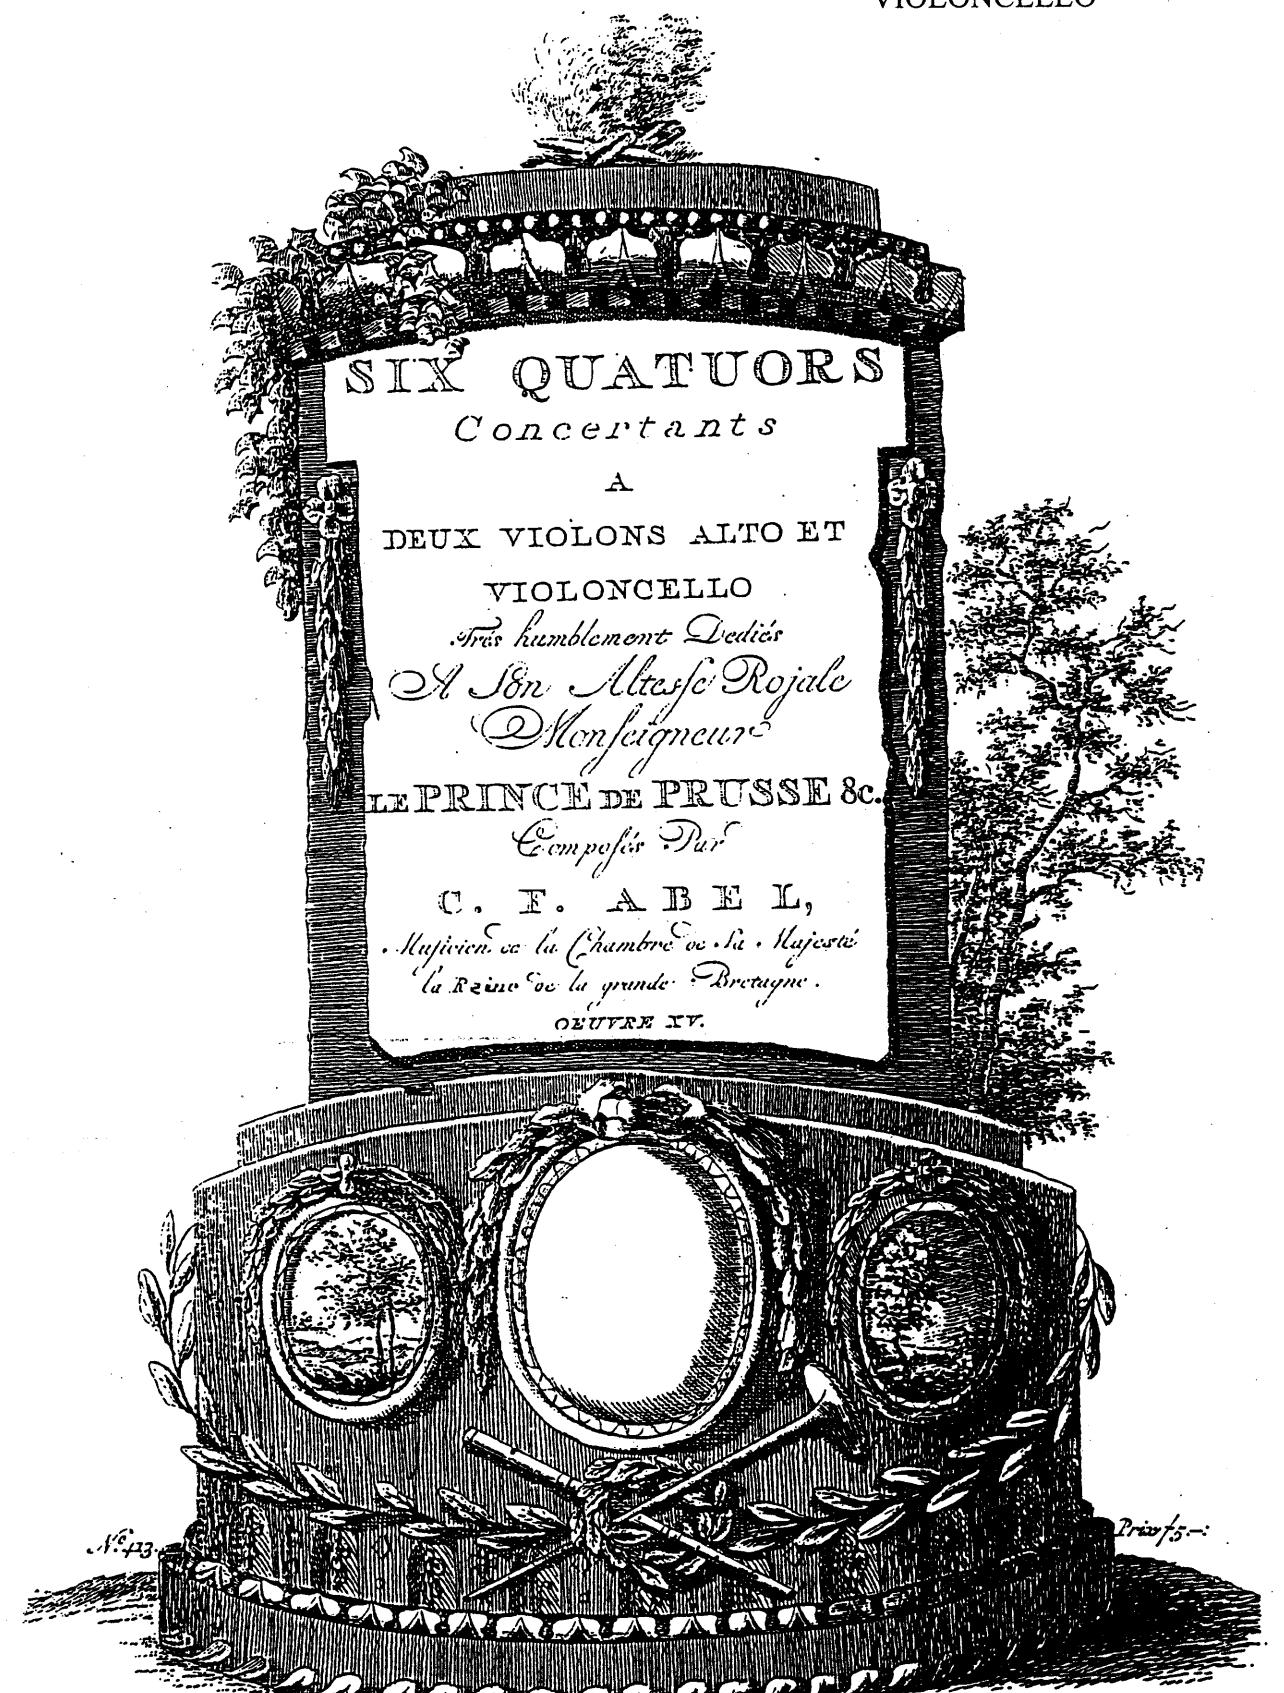 VIOLONCELLO
SIX QUATUORS
Concertants
A
DEUX VIOLONS ALTO ET
VIOLONCELLO
Trés humblement Dediés
A Son Altesse Rojale
Monseigneur
LE PRINCE DE PRUSSE &c.
Composés Par
C. F. ABEL,
Musicien de la Chambre de Sa Majesté
la Reine de la grande Bretagne.
OEUVRE XV.
No. 423.
Prix f 5-: